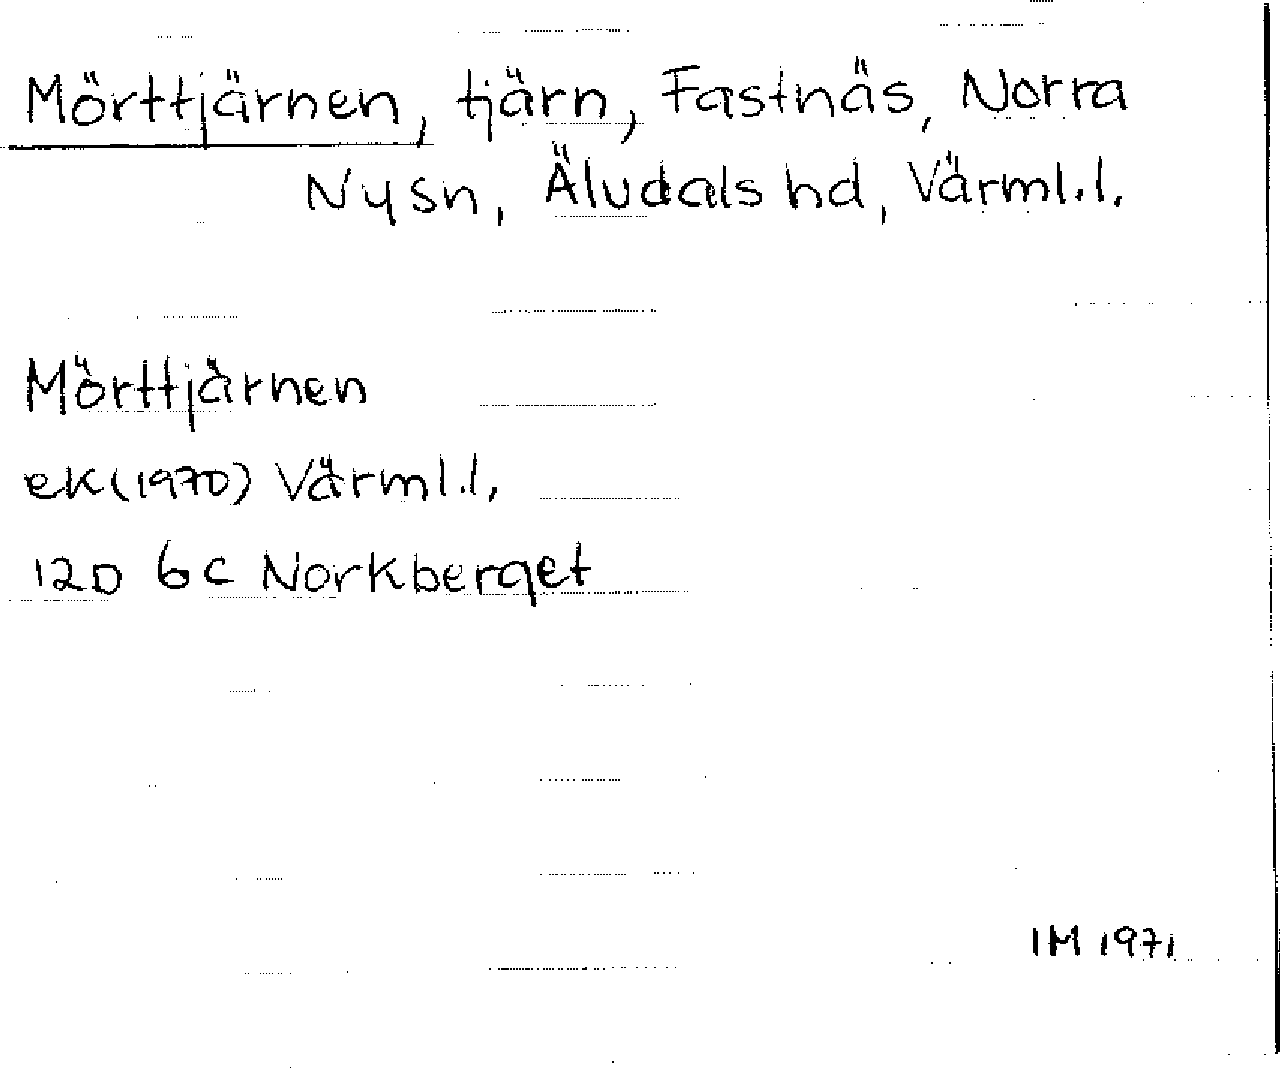 Mörttjärnen, tjärn, Fastnäs, Norra
Ny sn, Äludals hd, Värml.l.
Mörttjärnen
ek (1970) Värml.l,
12D 6c Norkberget
IM 1971